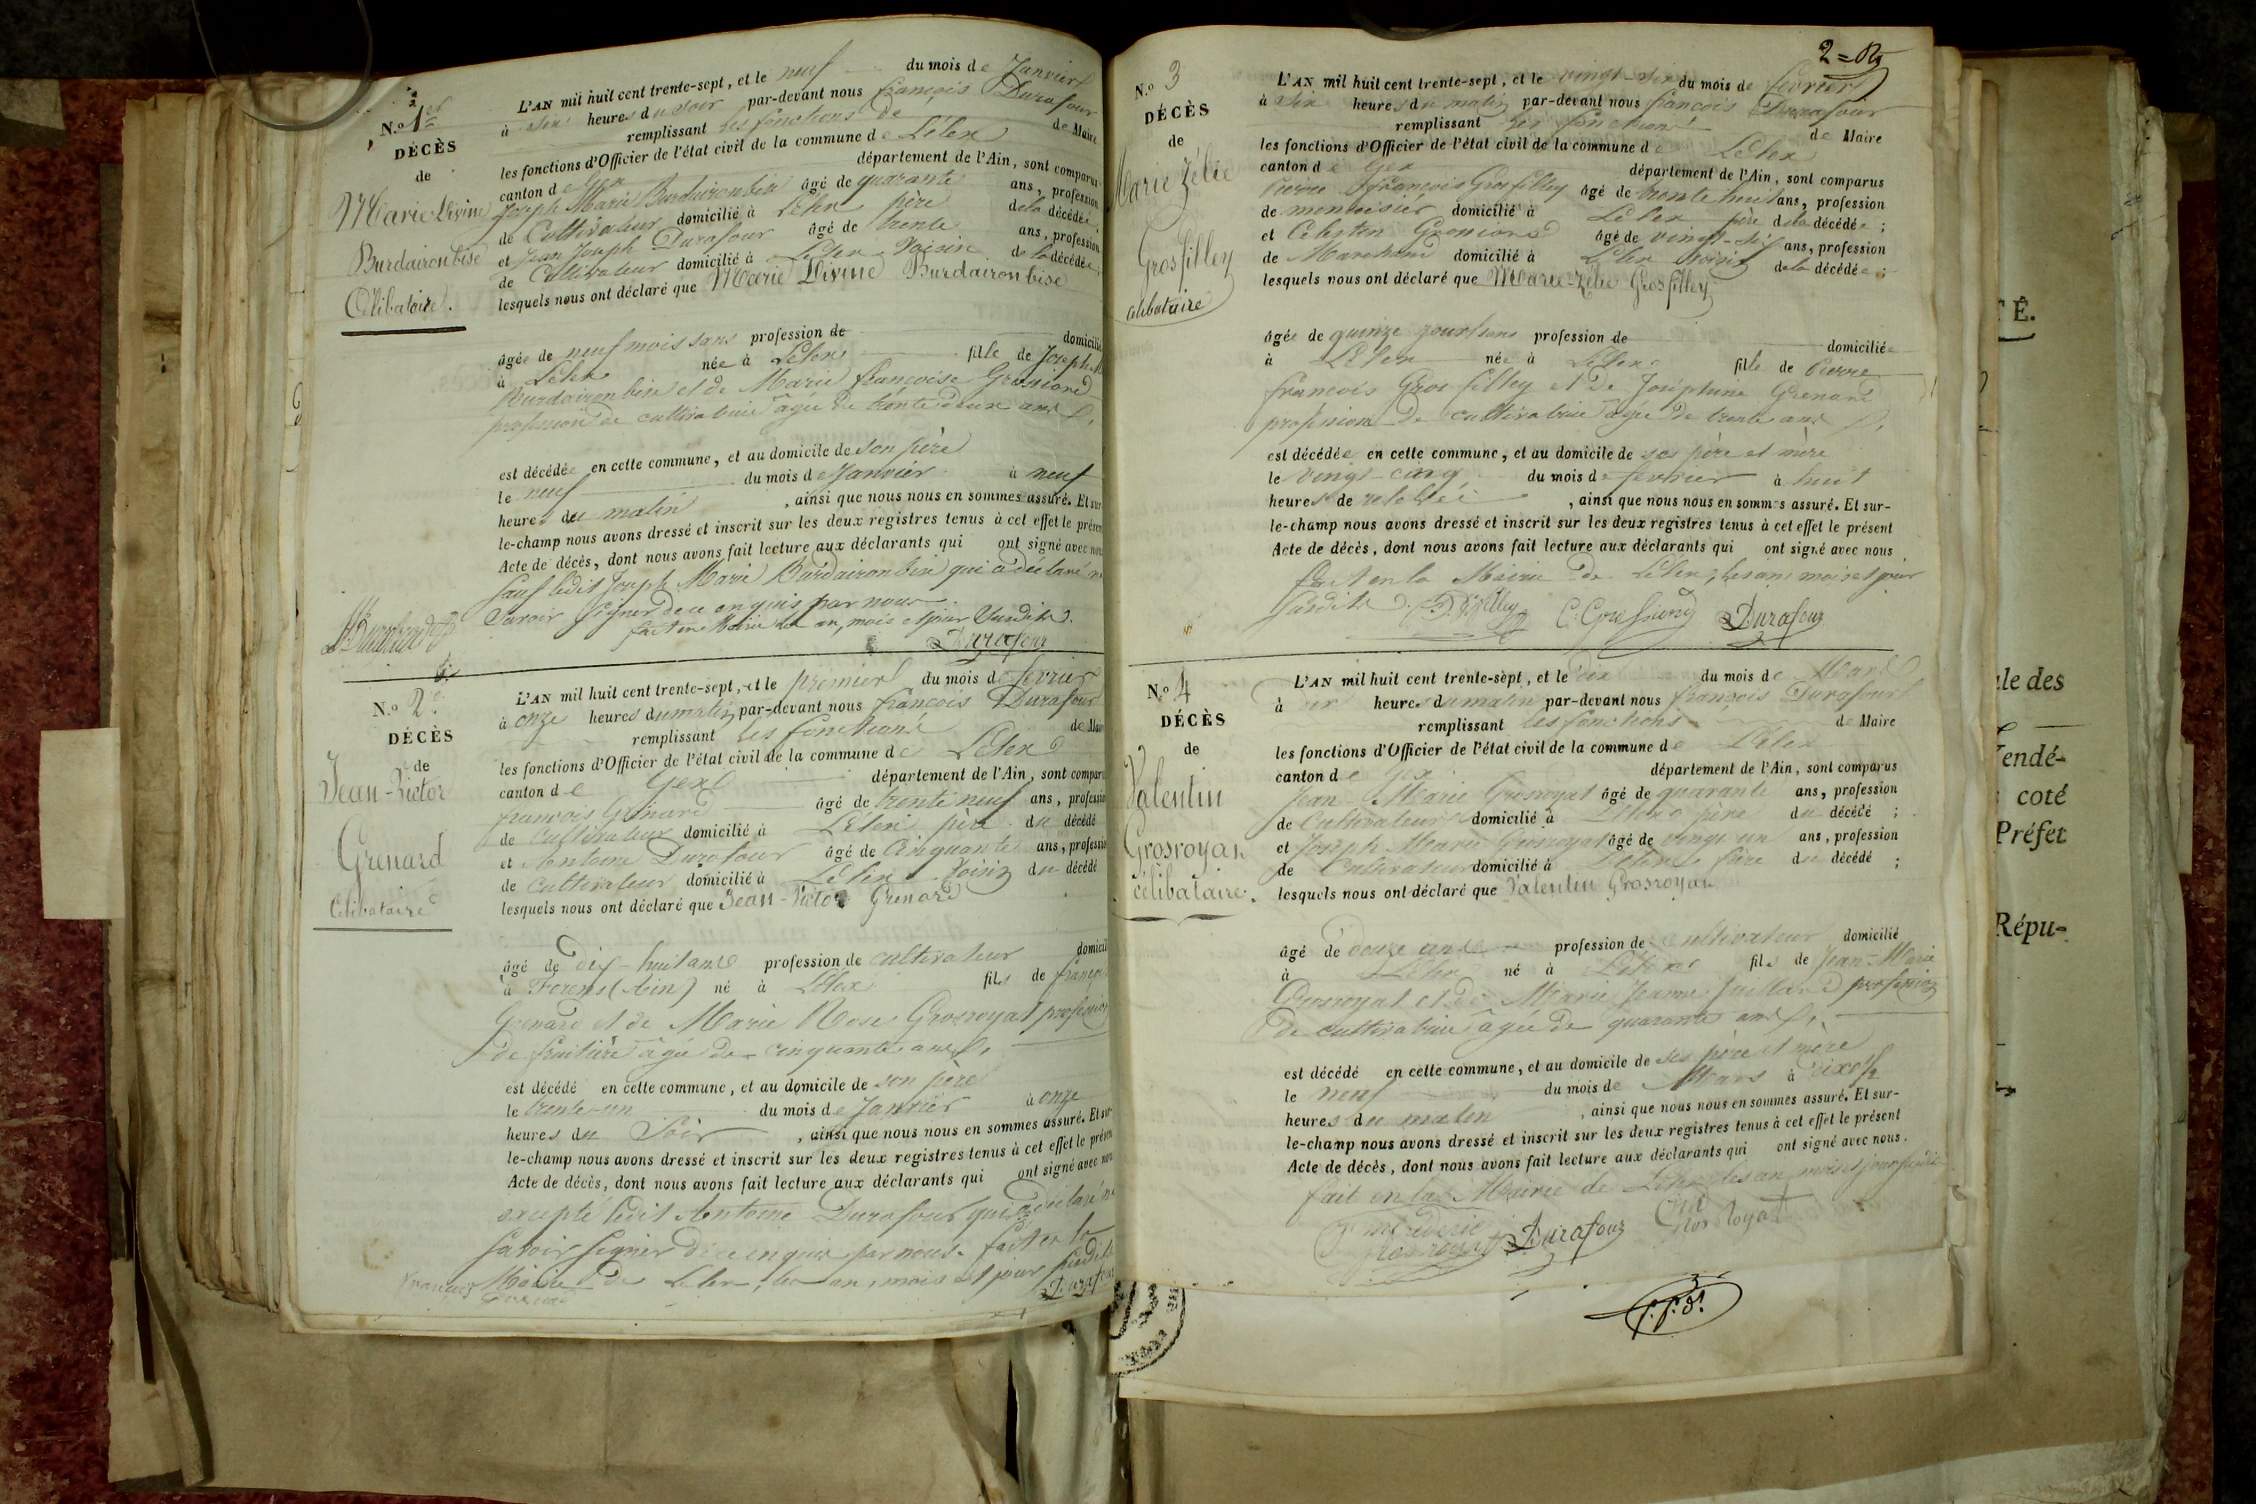 N.o 1er
DÉCÈS
de
Marie Divine
Burdaironbise
Célibataire.
L'AN mil huit cent trente-sept, et le neuf du mois de Janvier
à six heures du soir par-devant nous françois Durafour
remplissant les fonctions de de Maire
les fonctions d'Officier de l'état civil de la commune de Lélex
canton de Gex département de l'Ain, sont comparus
Joseph Marie Burdaironbise âgé de quarante ans, profession
de Cultivateur domicilié à Lélex père de la décédée;
et Jean Joseph Durafour âgé de trente ans, profession
de Cultivateur domicilié à Lélex Voisin de la décédée;
lesquels nous ont déclaré que Marie Divine Burdaironbise
âgée de neuf mois sans profession de domicilié
à Lélex née à Lélex fille de Joseph M
Burdaironbise et de Marie françoise Grossiord
profession de cultivatrice âgée de trente deux ans
est décédée en cette commune, et au domicile de son père
le neuf du mois de Janvier à neuf
heures du matin, ainsi que nous nous en sommes assuré. Et sur-
le-champ nous avons dressé et inscrit sur les deux registres tenus à cet effet le présent
Acte de décès, dont nous avons fait lecture aux déclarants qui ont signé avec nous
Sauf ledit Joseph Marie Burdaironbise qui a déclaré ne
Savoir signer de ce enquis par nous.
fait en Mairie les an, mois et jour Susdits.
Durafour
N.o 2e
DÉCÈS
de
Jean-Victor
Grenard
Célibataire
L'AN mil huit cent trente-sept, et le premier du mois de fevrier
à onze heures du matin par-devant nous françois Durafour
remplissant les fonctions de Maire
les fonctions d'Officier de l'état civil de la commune de Lélex
canton de Gex département de l'Ain, sont comparus
francois Grenard âgé de trente neuf ans, profession
de Cultivateur domicilié à Lélex père du décédé
et Antoine Durafour âgé de Cinquante ans, profession
de Cultivateur domicilié à Lélex Voisin du décédé
lesquels nous ont déclaré que Jean-Victor Grenard
âgé de dix-huit ans profession de cultivateur domicilié
à Forens (Ain) né à Lélex fils de françois
Grenard et de Marie Rose Grosroyat profession
de fruitière âgée de cinquante ans
est décédé en cette commune, et au domicile de son père
le trente-un du mois de Janvier à onze
heures du Soir, ainsi que nous nous en sommes assuré. Et sur-
le-champ nous avons dressé et inscrit sur les deux registres tenus à cet effet le présent
Acte de décès, dont nous avons fait lecture aux déclarants qui ont signé avec nous
excepté ledit Antoine Durafour qui a déclaré ne
Savoir signer de ce enquis par nous. fait en la
Mairie de Lélex, les an, mois et jour susdits
françois Grenard Durafour
2=
N.o 3
DÉCÈS
de
Marie Zélie
Grosfilley
célibataire
L'AN mil huit cent trente-sept, et le vingt-six du mois de fevrier
à six heures du matin par-devant nous francois Durafour
remplissant les fonctions de Maire
les fonctions d'Officier de l'état civil de la commune de Lélex
canton de Gex département de l'Ain, sont comparus
Pierre françois Grosfilley âgé de trente huit ans, profession
de menuisier domicilié à Lélex père de la décédée;
et Célestin Grossiord âgé de vingt-six ans, profession
de Marchand domicilié à Lélex Voisin de la décédée;
lesquels nous ont déclaré que Marie-Zélie Grosfilley
âgée de quinze jours sans profession de domiciliée
à Lélex née à Lélex fille de Pierre
francois Gros filley et de Joséphine Grenard
profession de cultivatrice âgée de trente ans
est décédée en cette commune, et au domicile de ses père et mère
le vingt-cinq du mois de fevrier à huit
heures de relevée, ainsi que nous nous en sommes assuré. Et sur-
le-champ nous avons dressé et inscrit sur les deux registres tenus à cet effet le présent
Acte de décès, dont nous avons fait lecture aux déclarants qui ont signé avec nous
fait en la Mairie de Lélex, les an mois et jour
susdits. C. Grossiord Durafour
N.o 4
DÉCÈS
de
Valentin
Grosroyat
célibataire.
L'AN mil huit cent trente-sept, et le dix du mois de Mars
à dix heures du matin par-devant nous françois Durafour
remplissant les fonctions de Maire
les fonctions d'Officier de l'état civil de la commune de Lélex
canton de Gex département de l'Ain, sont comparus
Jean-Marie Grosroyat âgé de quarante ans, profession
de Cultivateur domicilié à Lélex père du décédé;
et Joseph Marie Grosroyat âgé de vingt un ans, profession
de Cultivateur domicilié à Lélex frère du décédé;
lesquels nous ont déclaré que Valentin Grosroyat
âgé de douze ans profession de cultivateur domicilié
à Lélex né à Lélex fils de Jean-Marie
Grosroyat et de Marie Jeanne Juilland profession
de cultivatrice âgée de quarante ans
est décédé en cette commune, et au domicile de ses père et mère
le neuf du mois de Mars à six
heures du matin, ainsi que nous nous en sommes assuré. Et sur-
le-champ nous avons dressé et inscrit sur les deux registres tenus à cet effet le présent
Acte de décès, dont nous avons fait lecture aux déclarants qui ont signé avec nous.
fait en la Mairie de Lélex les an mois et jour susdits
Grosroyat Durafour Grosroyat
TÉ.
ale des
Vendé-
coté
Préfet
Répu-